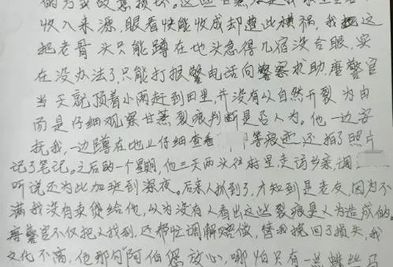 收入来源，眼看快能收成却遭此横祸，我把这
起老骨头只能蹲在地头急得几宿没合眼，实
在没办法了只能打报警电话向警察求助。唐警官
当天就顶着小雨赶到田里，并没有以自然开裂为由
而是仔细观察甘蔗裂痕判断是否人为。他一边安
抚我，一边蹲在地上仔细查看 等痕迹还拍了照片
记了笔记。之后的一个星期，他三天两头往村里走访乡亲，调
听说还为此加班到深夜。后来人找到了，才知到是老友因为不
满我没有卖货给他，以为没有人看出这些裂痕是人为造成的。
唐警官不仅把人找到，还帮忙调解赔偿，替我挽回了损失，我
文化不高，但那句阿伯您放心，哪怕只有一